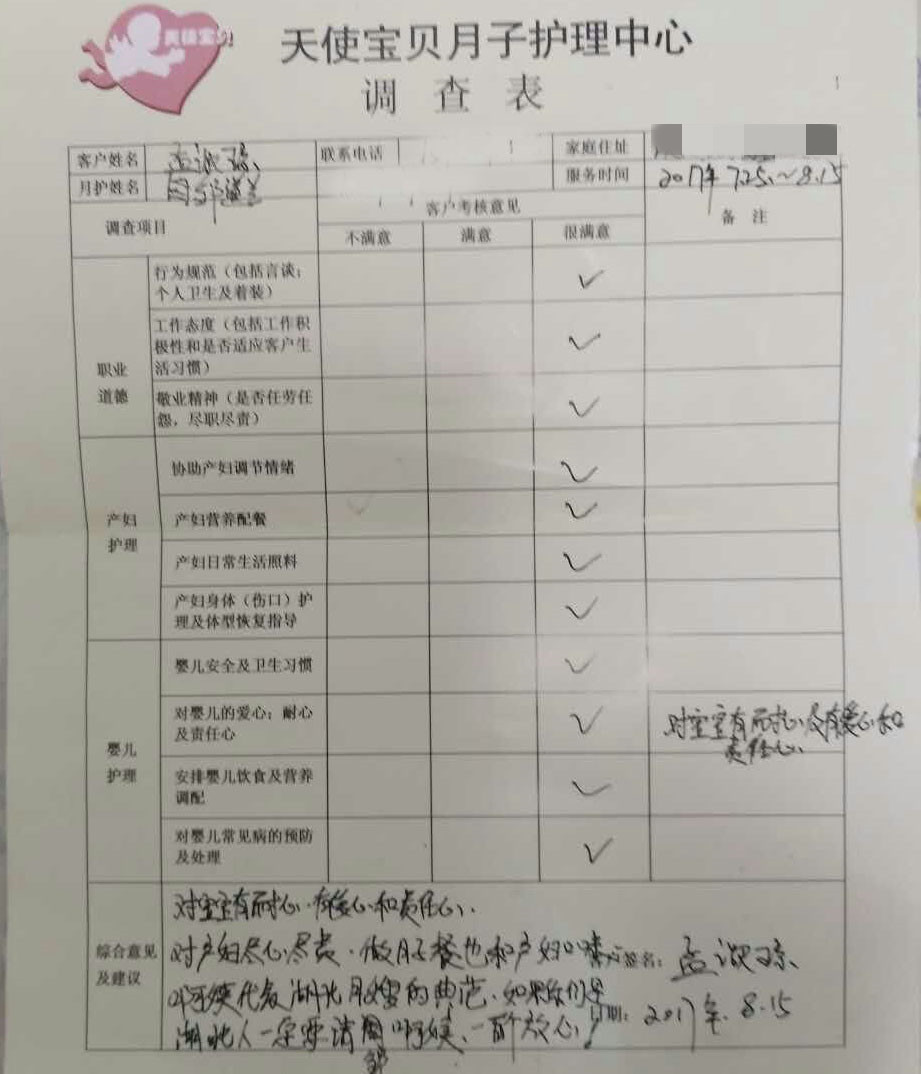 天使宝贝
天使宝贝月子护理中心
调查表
客户姓名 孟淑琼 联系电话 家庭住址
月护姓名 服务时间 2017年7.25~8.15
调查项目 客户考核意见 备注
不满意 满意 很满意
职业
道德
行为规范（包括言谈；
个人卫生及着装） ✓
工作态度（包括工作积
极性和是否适应客户生
活习惯） ✓
敬业精神（是否任劳任
怨，尽职尽责） ✓
产妇
护理
协助产妇调节情绪 ✓
产妇营养配餐 ✓
产妇日常生活照料 ✓
产妇身体（伤口）护
理及体型恢复指导 ✓
婴儿
护理
婴儿安全及卫生习惯 ✓
对婴儿的爱心；耐心
及责任心 ✓
对宝宝有耐心及有爱心和
责任心
安排婴儿饮食及营养
调配 ✓
对婴儿常见病的预防
及处理 ✓
综合意见
及建议
对宝宝有耐心、有爱心和责任心、
对产妇尽心尽责、做月子餐也和产妇口味
签名：孟淑琼
阿姨代表湖北月嫂的典范、如果你们是
湖北人一定要请周阿姨、一百个放心！
邹
日期：2017年.8.15